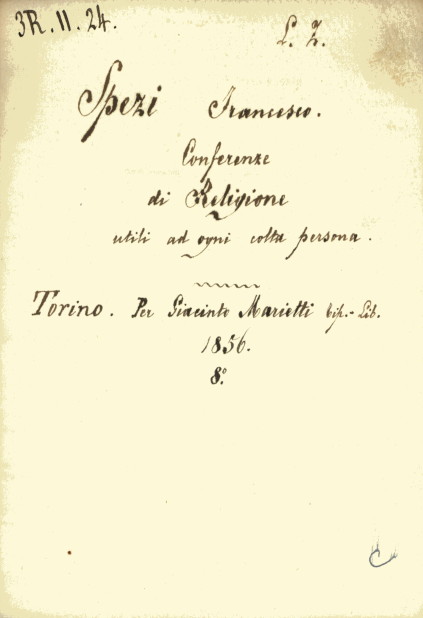 3R.11.24.
L. Z.
Spezi Francesco.
Conferenze
di Religione
utili ad ogni colta persona.
Torino. Per Giacinto Marietti tip.-Lib.
1856.
8.°